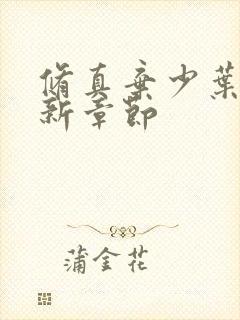 脩真棄少葉
新章節
蒲金花